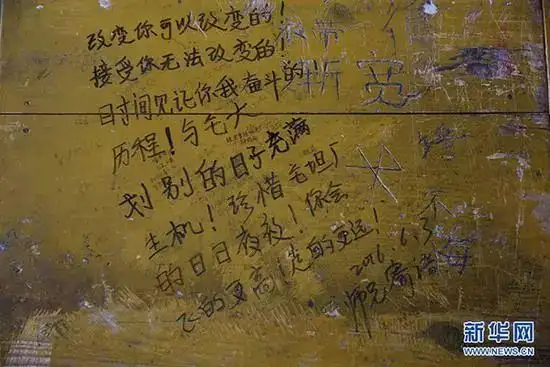 改变你可以改变的!
接受你无法改变的
日时间见记你我奋斗的
历程!与毛大
划别的日子充满
生机!珍惜毛坦厂
的日日夜夜!你会
飞的更高!走的更远!
2016.6.3
师兄寄语
宽
新华网
WWW.NEWS.CN